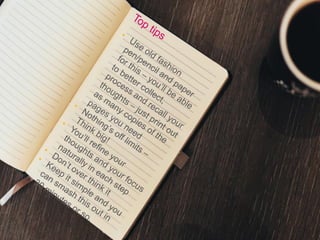 Top tips
· Use old fashion
pen/pencil and paper
for this – you'll be able
to better collect,
process and recall your
thoughts – just print out
as many copies of the
pages you need
· Nothing's off limits –
Think big!
· You'll refine your
thoughts and your focus
naturally in each step
· Don't over think it
· Keep it simple and you
can smash this out in
minutes or so